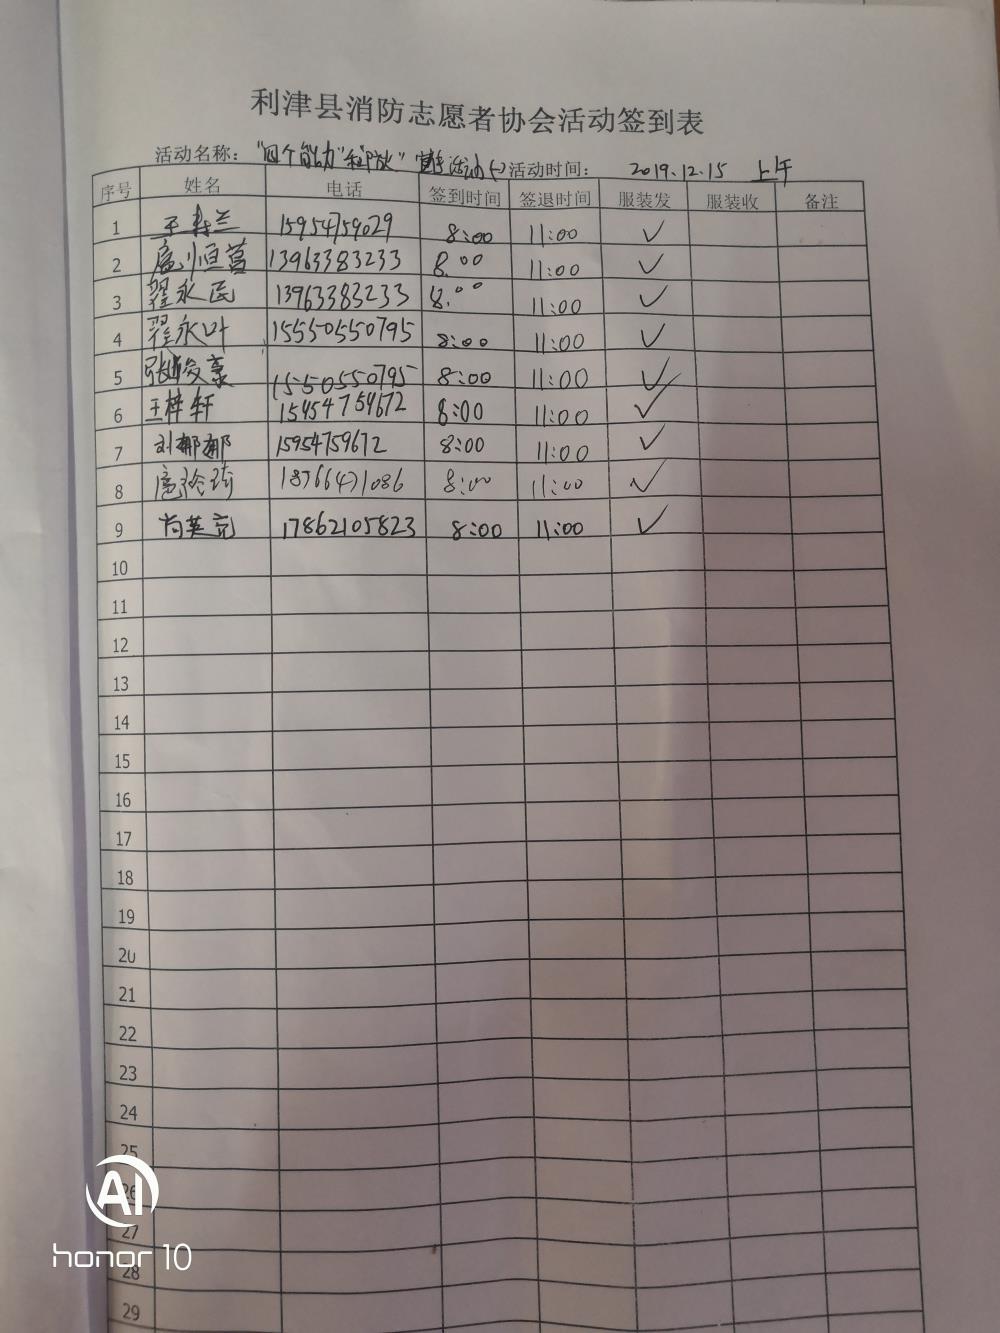 利津县消防志愿者协会活动签到表
活动名称: "四个能力"和防火" 宣传活动(-) 活动时间: 2019.12.15 上午
序号 姓名 电话 签到时间 签退时间 服装发 服装收 备注
1 王 兰 15954759029 8:00 11:00 ✓
2 扈恒营 13963383233 8:00 11:00 ✓
3 翟永民 13963383233 8:00 11:00 ✓
4 翟永叶 15550550795 8:00 11:00 ✓
5 张俊豪 15550550795 8:00 11:00 ✓
6 王梓轩 15954759672 8:00 11:00 ✓
7 刘娜娜 15954759672 8:00 11:00 ✓
8 扈玲琦 18766471086 8:00 11:00 ✓
9 尚英克 17862105823 8:00 11:00 ✓
10
11
12
13
14
15
16
17
18
19
20
21
22
23
24
25
26
27
28
29
AI
honor 10